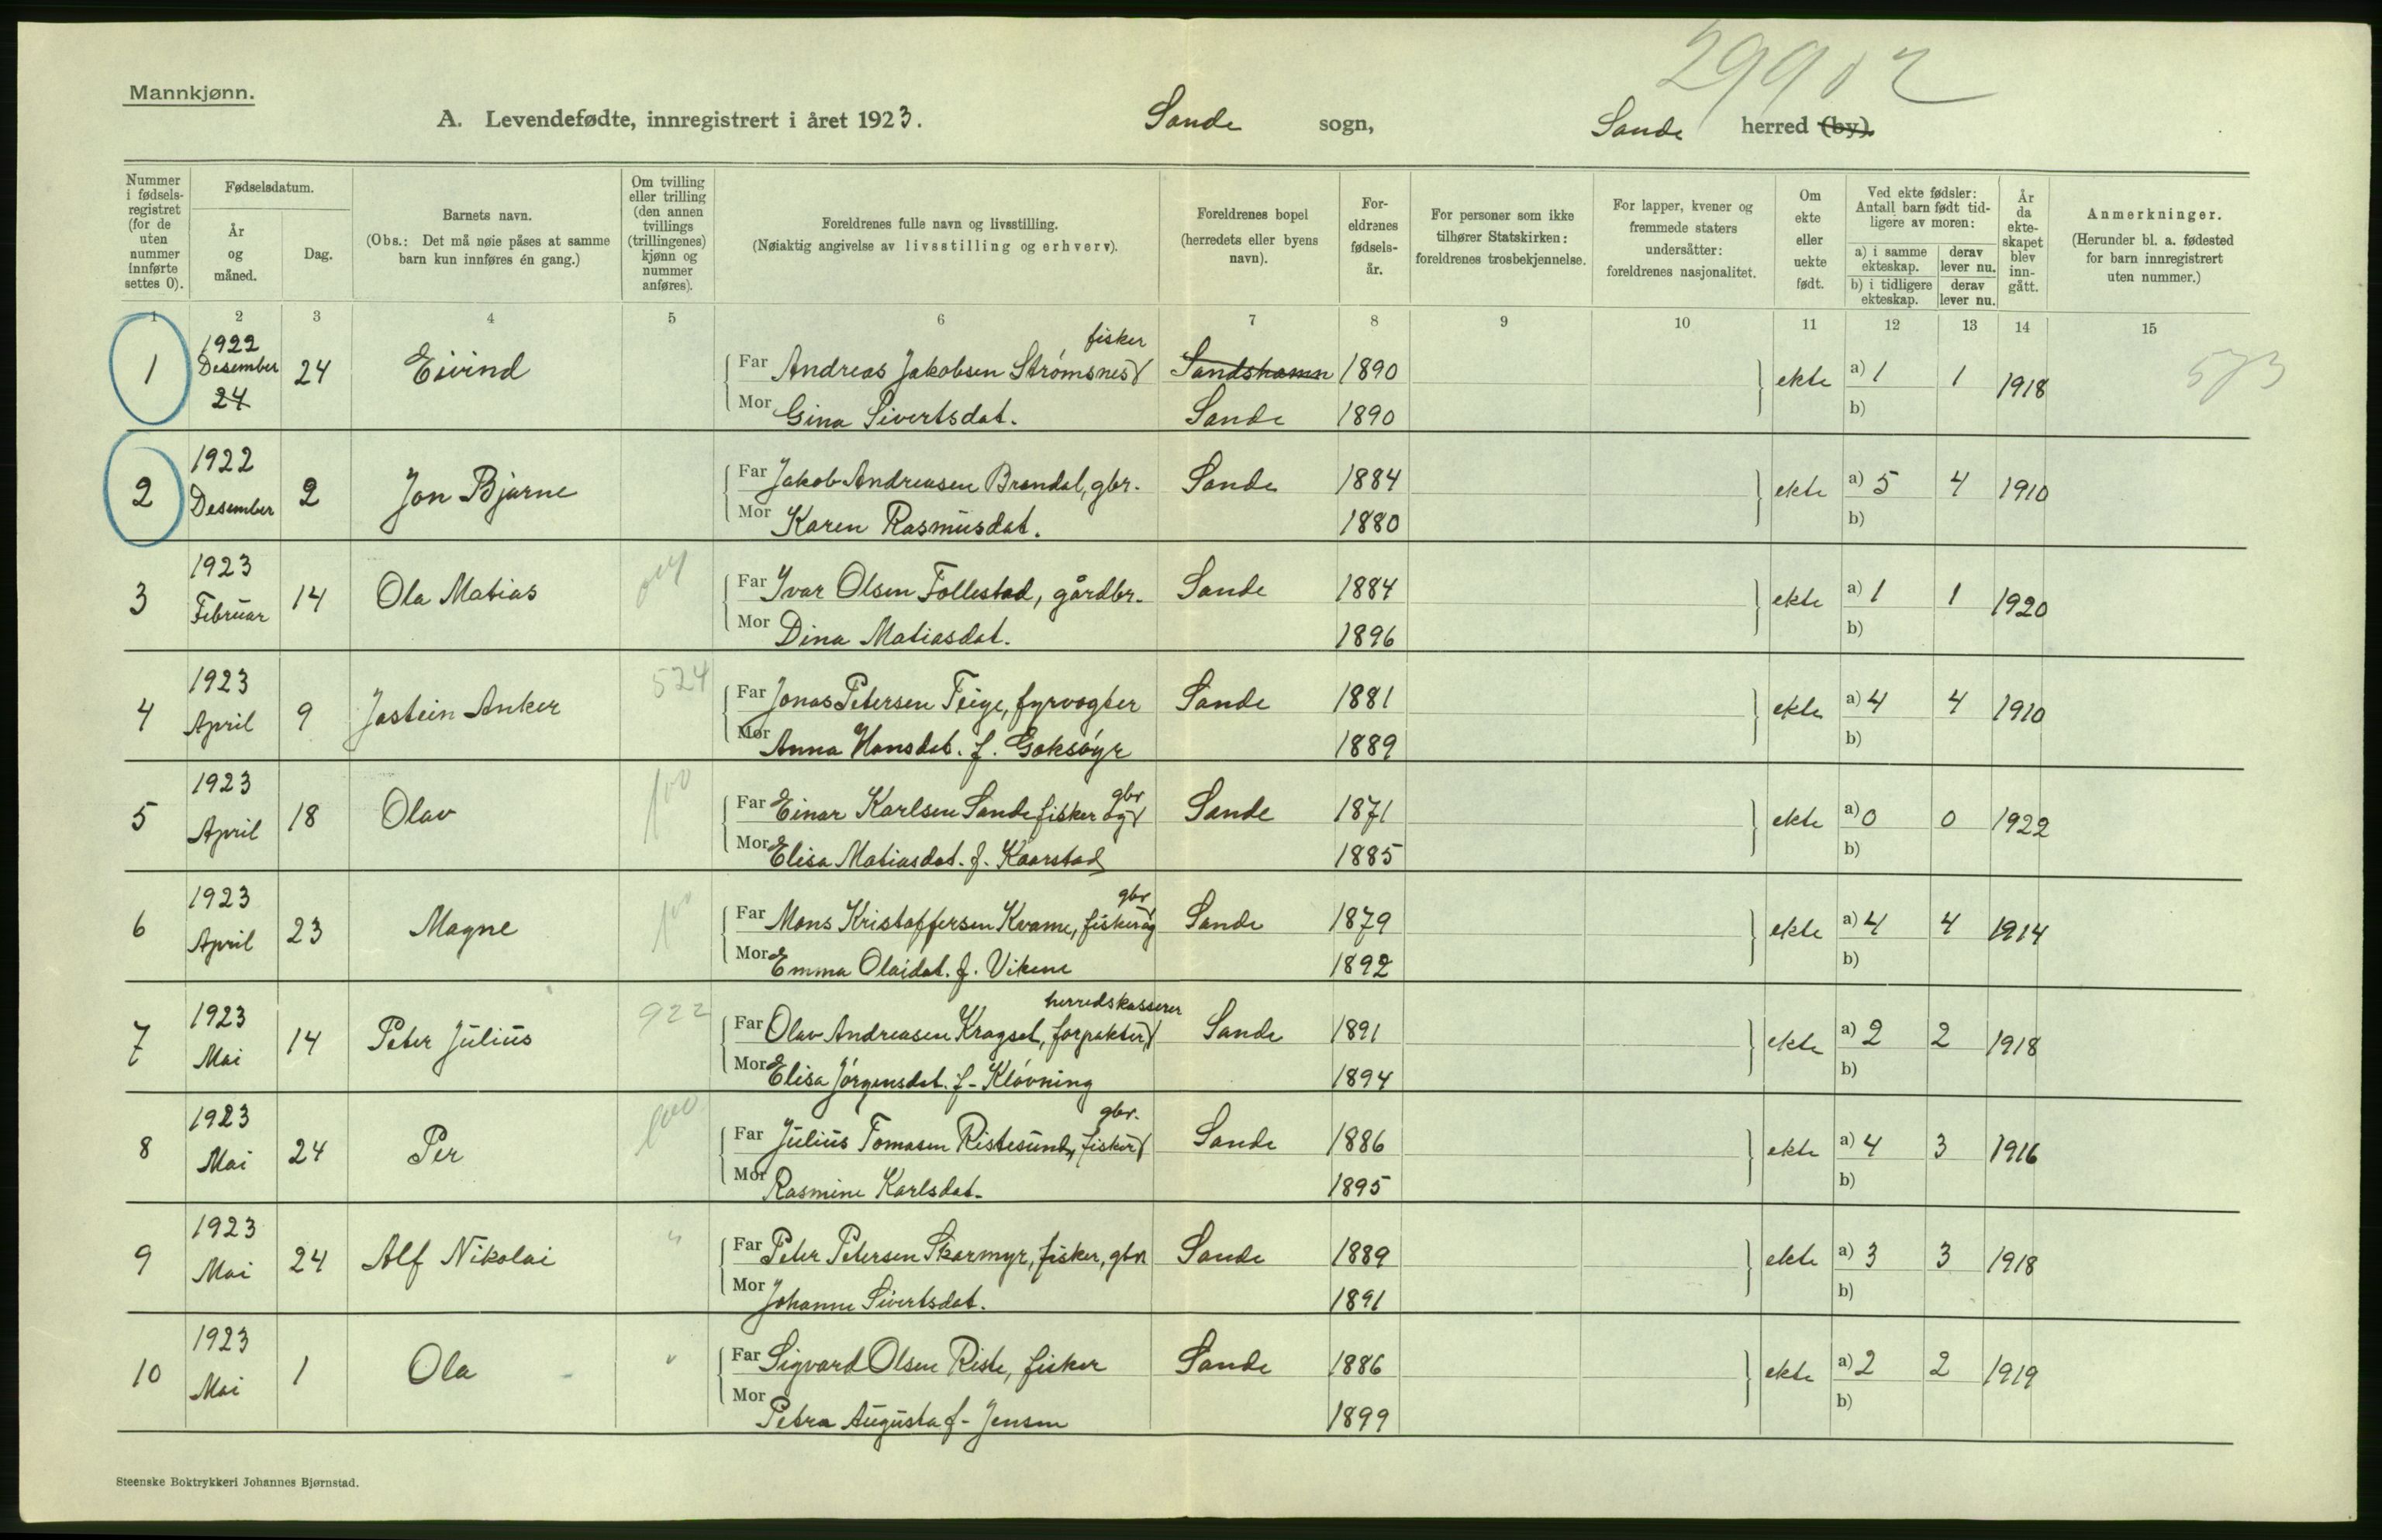 Mannkjønn.
29902
A. Levendefødte, innregistrert i året 1923. Sande sogn, Sande herred (by).
Nummer i fødsels-registret (for de uten nummer innførte settes 0).
Fødselsdatum.
År og måned.
Dag.
Barnets navn.
(Obs.: Det må nøie påses at samme barn kun innføres én gang.)
Om tvilling eller trilling (den annen tvillings (trillingenes) kjønn og nummer anføres).
Foreldrenes fulle navn og livsstilling.
(Nøiaktig angivelse av livsstilling og erhverv).
Foreldrenes bopel (herredets eller byens navn).
For-eldrenes fødsels-år.
For personer som ikke tilhører Statskirken: foreldrenes trosbekjennelse.
For lapper, kvener og fremmede staters undersåtter: foreldrenes nasjonalitet.
Om ekte eller uekte født.
Ved ekte fødsler: Antall barn født tid-ligere av moren:
a) i samme ekteskap. derav lever nu.
b) i tidligere ekteskap. derav lever nu.
År da ekte-skapet blev inn-gått.
Anmerkninger.
(Herunder bl. a. fødested for barn innregistrert uten nummer.)
1 2 3 4 5 6 7 8 9 10 11 12 13 14 15
1 1922 Desember 24 24 Eivind Far Andreas Jakobsen Strømsnes fisker Sandshamn 1890 ekte a) 1 1 1918 573
Mor Gina Sivertsdat. Sande 1890 b)
2 1922 Desember 2 Jon Bjarne Far Jakob Andreasen Brandal, gbr. Sande 1884 ekte a) 5 4 1910
Mor Karen Rasmusdat. 1880 b)
3 1923 Februar 14 Ola Matias Far Ivar Olsen Follestad, gårdbr. Sande 1884 ekte a) 1 1 1920
Mor Dina Matiasdat. 1896 b)
4 1923 April 9 Jostein Anker 524 Far Jonas Petersen Teige, fyrvogter Sande 1881 ekte a) 4 4 1910
Mor Anna Hansdat. f. Goksøyr 1889 b)
5 1923 April 18 Olav 100 Far Einar Karlsen Sande fisker og gbr Sande 1871 ekte a) 0 0 1922
Mor Elisa Matiasdat. f. Kaarstad 1885 b)
6 1923 April 23 Magne 100 Far Mons Kristoffersen Kvame, fisker og gbr Sande 1879 ekte a) 4 4 1914
Mor Emma Olaidat. f. Vikene 1892 b)
7 1923 Mai 14 Peter Julius 922 Far Olav Andreasen Kragset, forpakter, herredskasserer Sande 1891 ekte a) 2 2 1918
Mor Elisa Jørgensdat. f. Kløvning 1894 b)
8 1923 Mai 24 Per Far Julius Tomasen Ristesund, fisker gbr. Sande 1886 ekte a) 4 3 1916
Mor Rasmine Karlsdat. 1895 b)
9 1923 Mai 24 Alf Nikolai " Far Peter Petersen Skarmyr, fisker, gbr Sande 1889 ekte a) 3 3 1918
Mor Johanne Sivertsdat. 1891 b)
10 1923 Mai 1 Ola " Far Sigvard Olsen Riste, fisker Sande 1886 ekte a) 2 2 1919
Mor Petra Augusta f. Jensen 1899 b)
Steenske Boktrykkeri Johannes Bjørnstad.